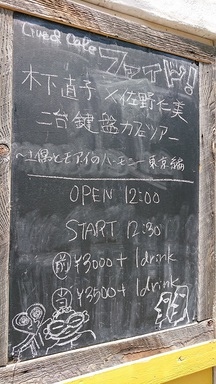 Live & Cafe
ファイド!
木下直子 / 佐野仁美
二台鍵盤カフェツアー
~土偶とモアイのハーモニー 東京編
OPEN 12:00
START 12:30
前 ¥3000+ 1drink
当 ¥3500+ 1drink